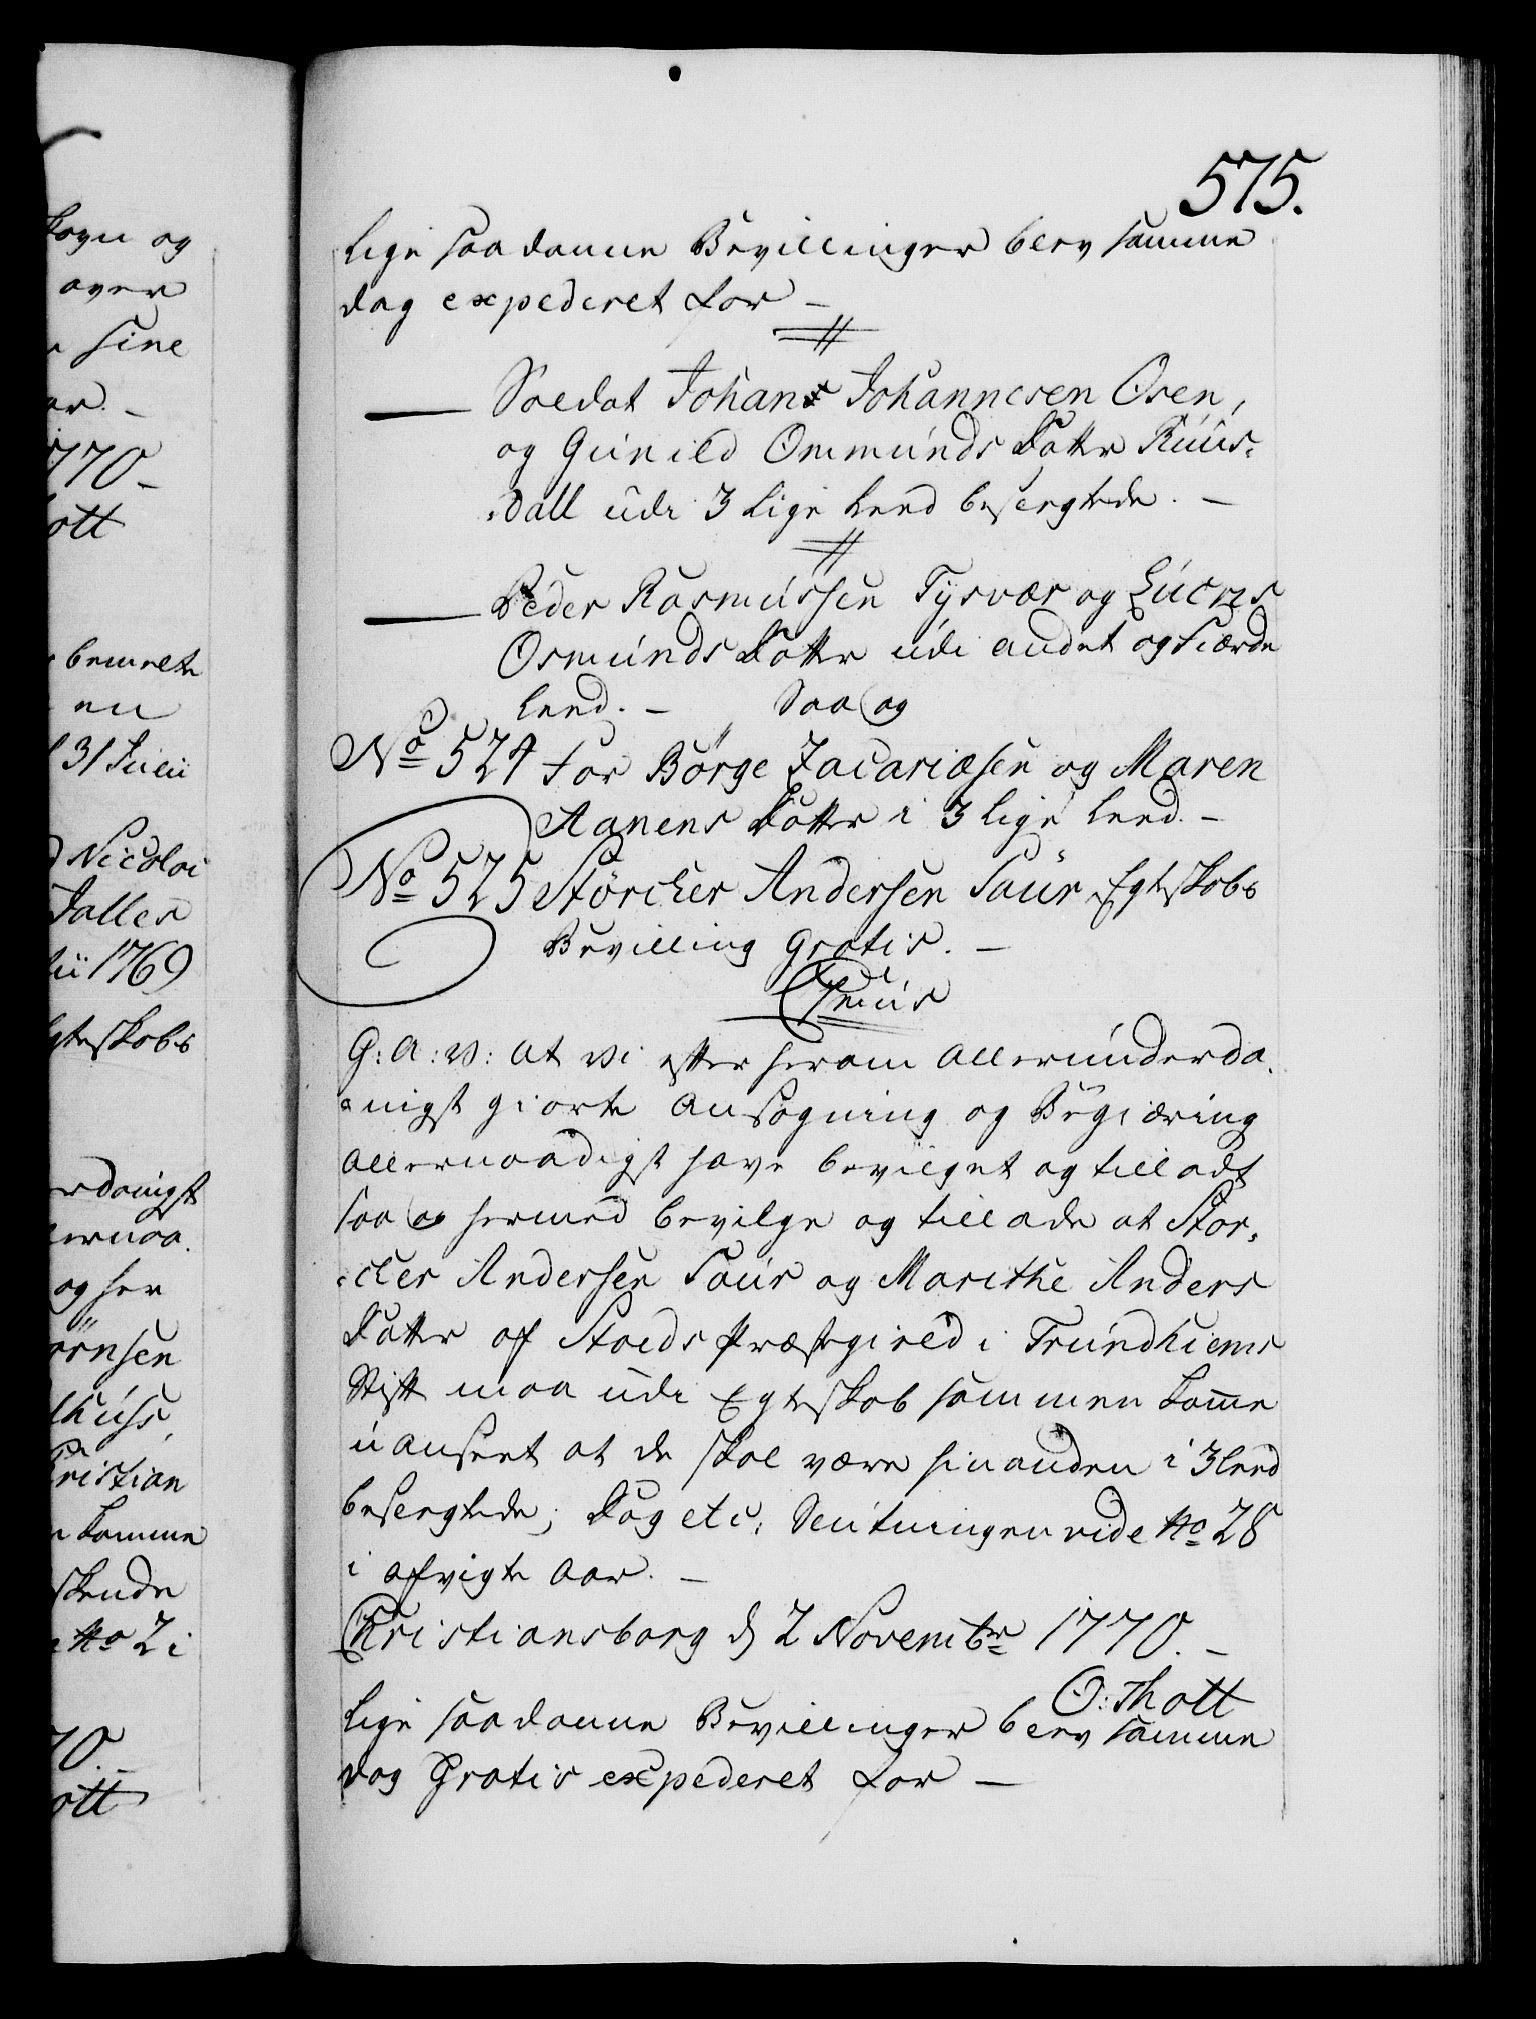 575.
lige saadanne Bevillinger blev samme
dag expederet for –
Soldat Johan Johannesen Osen,
og Gunild Ommunds Datter Ruus-
-dall udi 3 lige Leed beslægtede. –
Peder Rasmussen Tysvær og
Osmunds Datter udi andet og Fierde
Leed. – Saa og
No 524 for Börge Zacariæsen og Maren
Aanens Datter i 3 lige Leed. –
No 525 Störcker Andersen Saur Egteskabs
Bevilling Gratis. –
G: A: V: at vi efter herom allerunderda-
-nigst giorte Ansøgning og Begiæring
allernaadigst have bevilget og tilladt
saa og hermed bevilge og tillade at Stor-
-cker Andersen Saur og Marithe Anders
Datter af Stoeds Præstegield i Trundhiems
Stift maa udi Egteskab sammen komme
uanseet at de skal være hinanden i 3 Leed
beslegtede; Dog etc: Slutningen vide No 28
i afvigte Aar. –
Christiansborg d 2 Novembr 1770. –
O: Thott
lige saadanne Bevillinger blev samme
dag Gratis expederet for –
skovn og
over
sine
ar. –
1770 –
ott
bemelte
en
31 Julii
Nicolai
Jalles
lii 1769
gteskabs
rdanigst
lernaa-
og her
örnsen
lhuss,
Cristian
komme
skende
No 2 i
70. –
ott